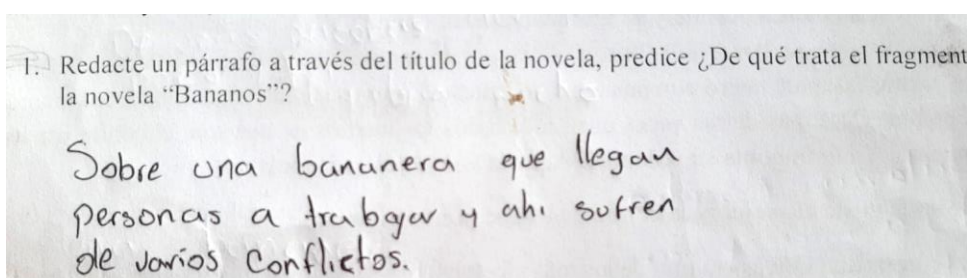 1. Redacte un párrafo a través del título de la novela, predice ¿De qué trata el fragment
la novela “Bananos”?
Sobre una bananera que llegan
personas a trabajar y ahi sufren
de varios Conflictos.